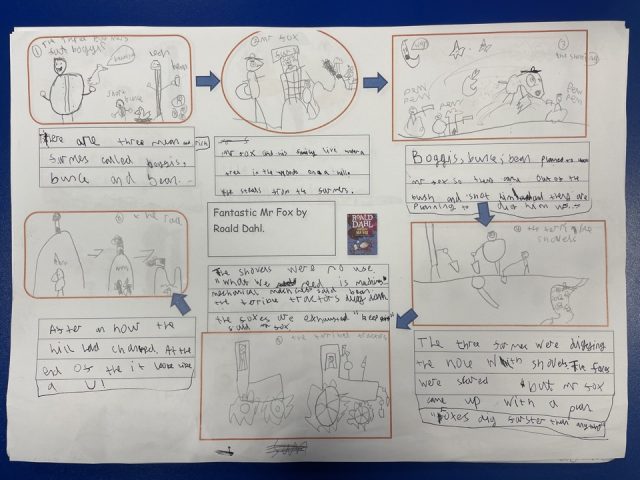 ① The three farmers
fat boggis
lean
bean
short
bunce
② mr fox
③ the shooting
Pew
Pew
Pew
Pew
There are three mean and rich
farmes called boggis,
bunce and bean.
mr fox and his family live under a
tree in the woods on a hill.
He steals from the farmers.
Boggis, bunce, bean planned to
mr fox so they came out of the
bush and shot him and there are
planning to dig him
④ the terrible
shovels
The three farmer were digging
the hole with shovels The foxes
were scared but mr fox
came up with a plan
"foxes dig farster than
Fantastic Mr Fox by
Roald Dahl.
ROALD
DAHL
The shovels were no use.
"what we need is machines"
mechanical said bean
the terrible tractors digg
the foxes are exhausted "keep
said mr fox
⑤ the terrible tracters
⑥
After an howr the
hill had changed. At the
end of the it looke like
a U!